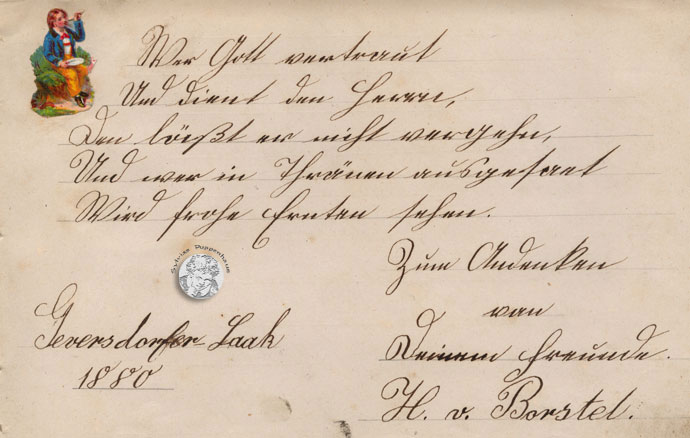 Wer Gott vertraut
Und dient den Herrn,
Den läßt er nicht vergehn,
Und wer in Thränen ausgesaet
Wird frohe Ernten sehen.
Sylvias Puppenhaus
Zum Andenken
von
Deinem Freunde.
H. v. Borstel.
Geversdorfer-Laak
1880